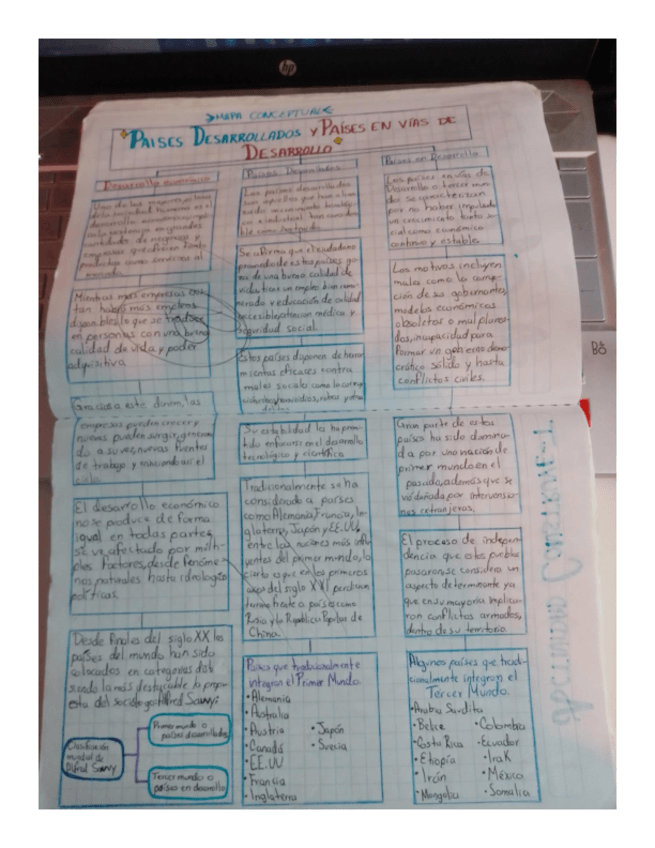 hp
>MAPA CONCEPTUAL<
PAISES DESARROLLADOS Y PAÍSES EN VÍAS DE
DESARROLLO
Desarrollo económico
desarrollo económico
cantidad de empresas y
empresas que ofrecen tanto
productos como servicios al
mercado.
Mientras mas empresas exis
tan habrá más empleos
disponibles lo que se traduce
en personas con una buena
calidad de vida y poder
adquisitivo.
Gracias a este dinero, las
empresas pueden crecer y
nuevas pueden surgir, generan
do a su vez, nuevas fuentes
de trabajo y reiniciando así el
ciclo.
El desarrollo económico
no se produce de forma
igual en todas partes,
se ve afectado por múlti-
ples factores, desde fenóme-
nos naturales hasta ideologías
políticas.
Desde finales del siglo XX los
países del mundo han sido
colocados en categorías disti
siendo la más destacable la propu
esta del sociólogo Alfred Sauvy:
Clasificación
mundial de
Alfred Sauvy
Primer mundo o
países desarrollados
Tercer mundo o
países en desarrollo
Países Desarrollados
Los países desarrollados
son aquellos que han
ble como
Se afirma que el ciudadano
promedio de estos países go
za de una buena calidad de
vida, tiene un empleo bien remu-
nerado y educación de calidad
accesible, atención médica y
seguridad social.
Estos países disponen de herra
mientas eficaces contra
males sociales como la corrup
robos y otros
delitos.
Su estabilidad les ha permi-
tido enfocarse en el desarrollo
tecnológico y científico.
Tradicionalmente se ha
considerado a países
como Alemania, Francia, In-
glaterra, Japón y EE.UU.
entre las naciones más influ
yentes del primer mundo, lo
cierto es que en los primeros
años del siglo XXI perdieron
terreno frente a países como
Rusia y la República Popular de
China.
Países que tradicionalmente
integran el Primer Mundo.
•Alemania
•Australia
•Austria
•Canadá
•EE.UU
•Francia
•Inglaterra
•Japón
•Suecia
Países en Desarrollo
Los países en vías de
Desarrollo o tercer mun
do se caracterizan
por no haber impulsado
un crecimiento tanto so
cial como económico
continuo y estable.
Los motivos incluyen
males como la corrup
ción de sus gobernantes,
modelos económicos
obsoletos o mal planea-
dos, incapacidad para
formar un gobierno demo
crático sólido y hasta
conflictos civiles.
Gran parte de estos
países ha sido domina-
da por una nación de
primer mundo en el
pasado, además que se
ve dañada por intervensio
nes extranjeras.
El proceso de indepen-
dencia que estos pueblos
pasaron, se considera un
aspecto determinante ya
que en su mayoría implica-
ron conflictos armados,
dentro de su territorio.
Algunos países que tradi-
cionalmente integran el
Tercer Mundo.
•Arabia Saudita
•Belice
•Costa Rica
•Etiopía
•Irán
•Mongolia
•Colombia
•Ecuador
•Irak
•México
•Somalia